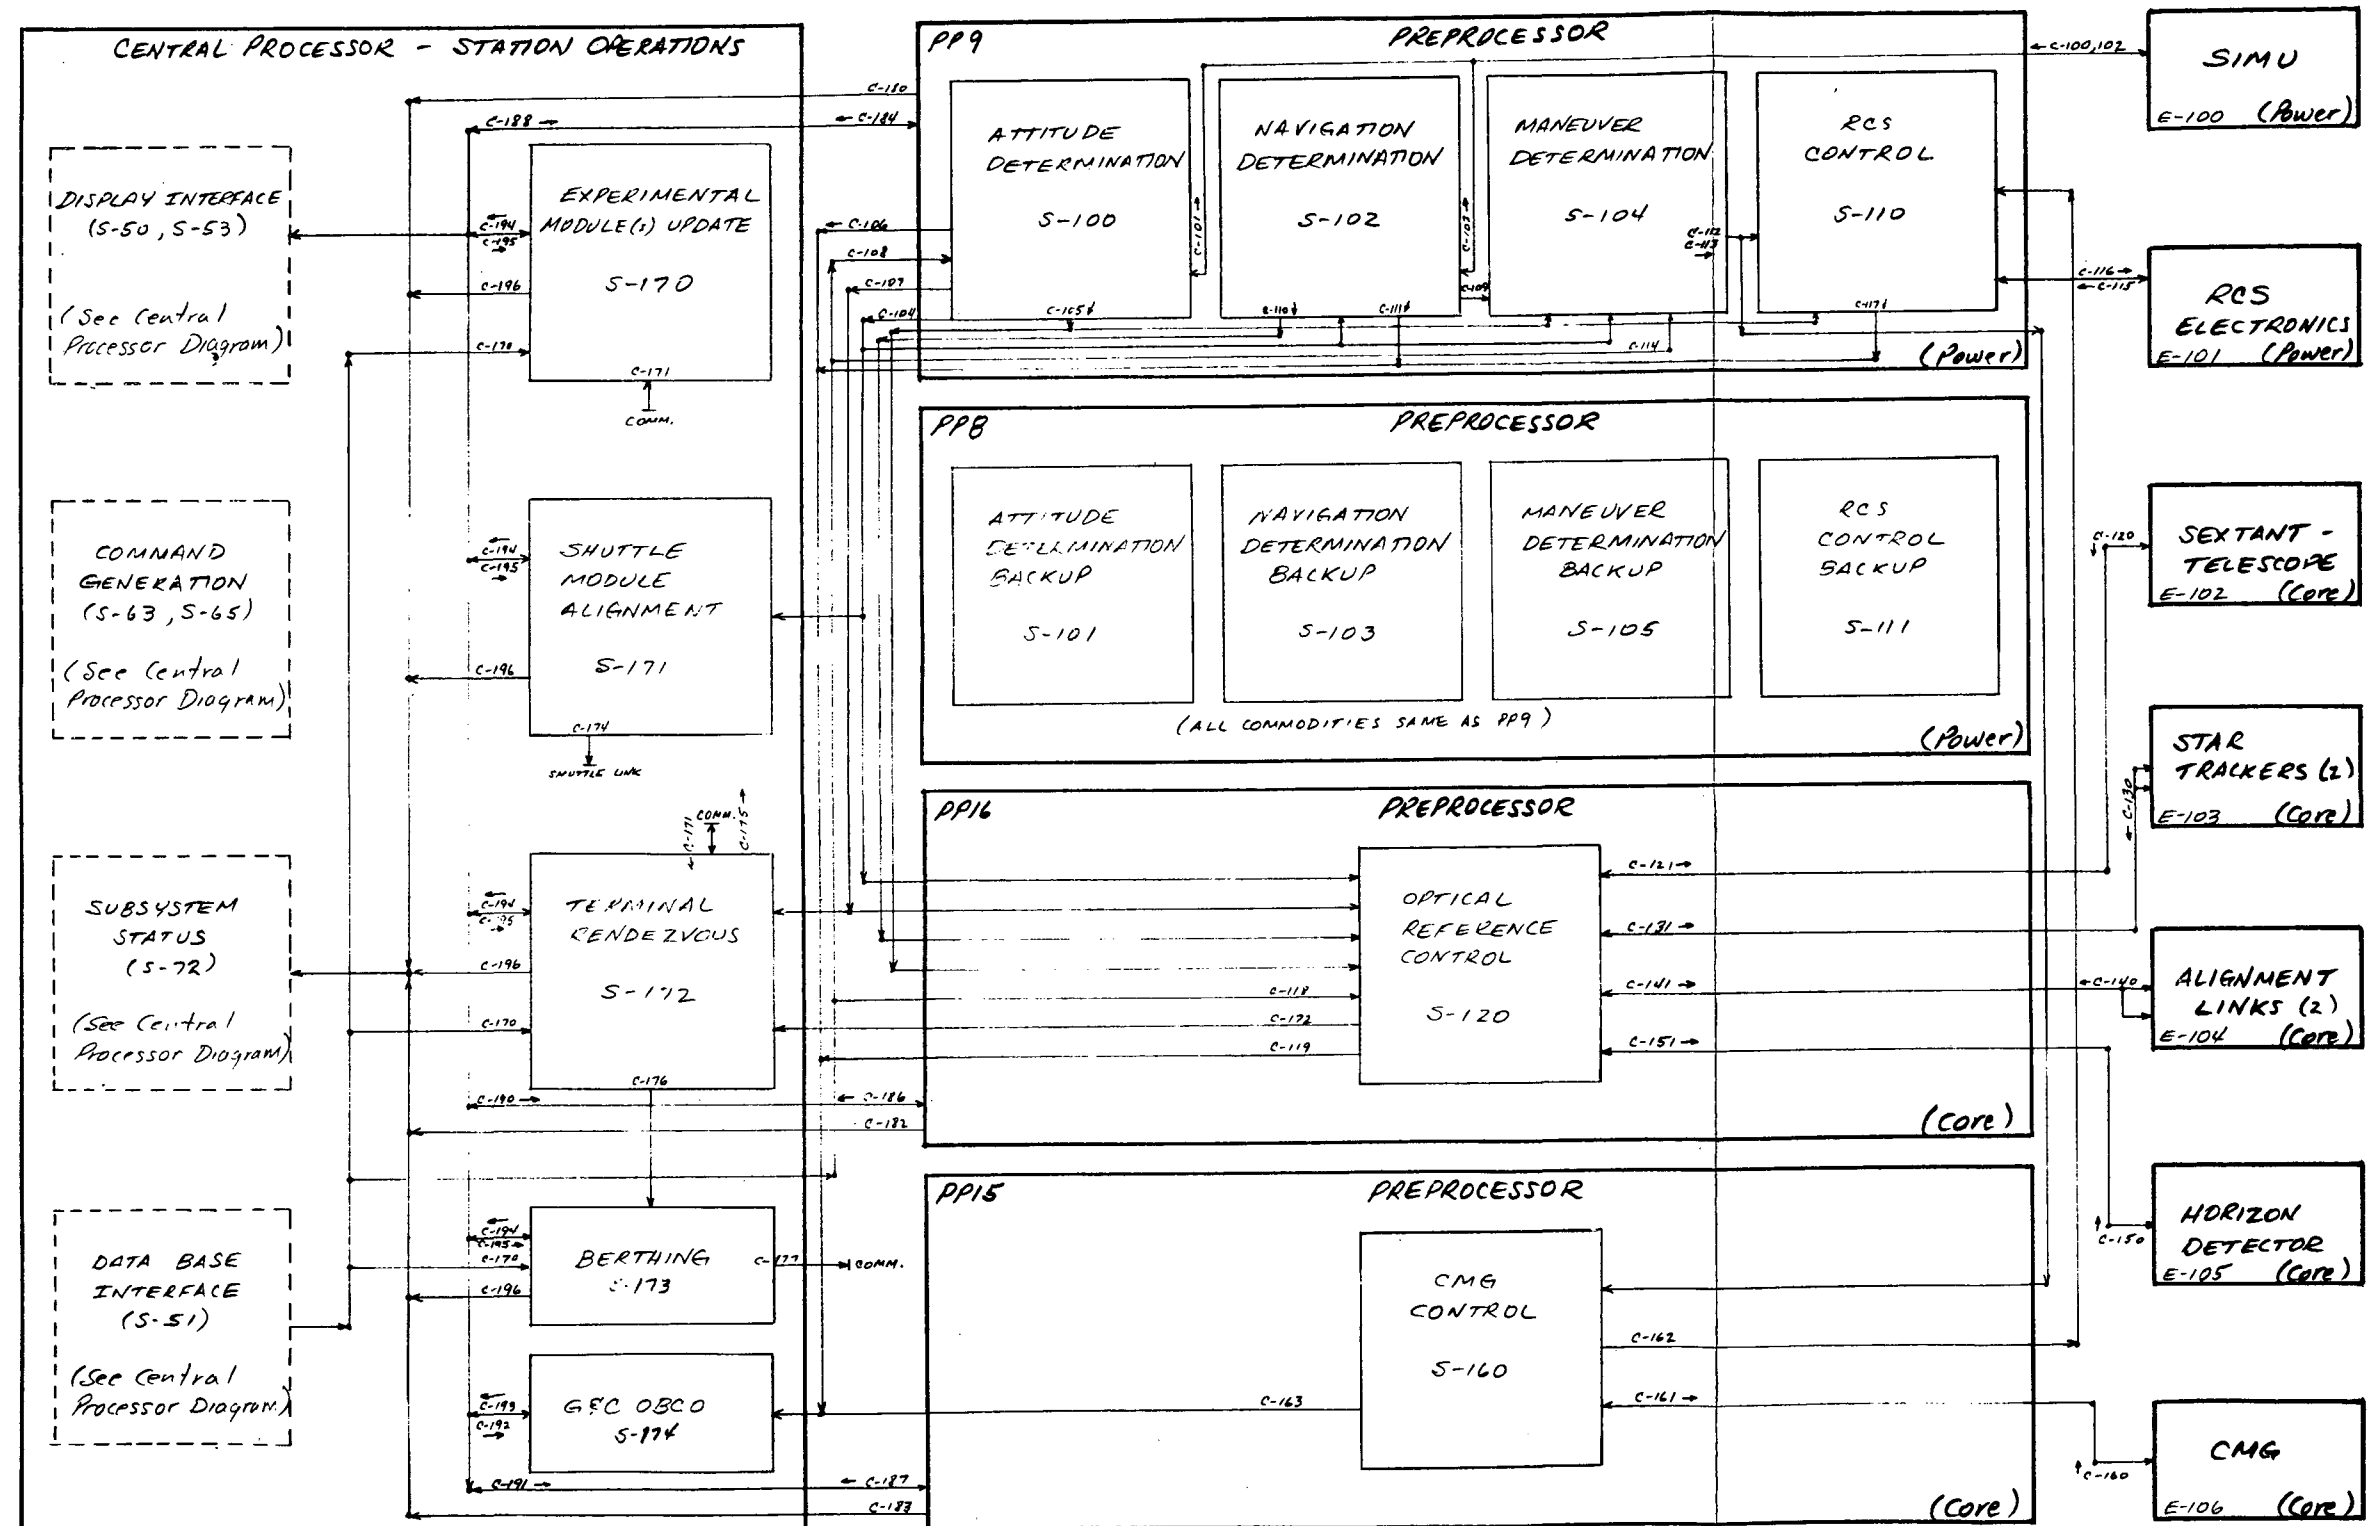 CENTRAL PROCESSOR - STATION OPERATIONS
DISPLAY INTERFACE
(S-50, S-53)
(See Central
Processor Diagram)
COMMAND
GENERATION
(S-63, S-65)
(See Central
Processor Diagram)
SUBSYSTEM
STATUS
(S-72)
(See Central
Processor Diagram)
DATA BASE
INTERFACE
(S-51)
(See Central
Processor Diagram)
C-188 →
← C-184
C-180
EXPERIMENTAL
MODULE(S) UPDATE
S-170
C-194
C-195
C-196
C-170
C-171
COMM.
SHUTTLE
MODULE
ALIGNMENT
S-171
C-194
C-195
C-196
C-174
SHUTTLE LINK
← C-171
COMM.
C-175 →
TERMINAL
RENDEZVOUS
S-172
C-194
C-195
C-196
C-170
C-176
C-190 →
← C-186
C-182
BERTHING
S-173
C-194
C-195
C-170
C-196
C-177
COMM.
G&C OBCO
S-174
C-193
C-192
C-191 →
← C-187
C-183
PP9
PREPROCESSOR
ATTITUDE
DETERMINATION
S-100
NAVIGATION
DETERMINATION
S-102
MANEUVER
DETERMINATION
S-104
RCS
CONTROL
S-110
← C-106
C-108
C-107
C-104
C-101 →
C-103 →
C-109
C-112
C-113
C-105↓
C-110↓
C-111↓
C-117↓
C-114
(Power)
PP8
PREPROCESSOR
ATTITUDE
DETERMINATION
BACKUP
S-101
NAVIGATION
DETERMINATION
BACKUP
S-103
MANEUVER
DETERMINATION
BACKUP
S-105
RCS
CONTROL
BACKUP
S-111
(ALL COMMODITIES SAME AS PP9)
(Power)
PP16
PREPROCESSOR
OPTICAL
REFERENCE
CONTROL
S-120
C-118
C-172
C-119
C-121 →
C-131 →
C-141 →
C-151 →
(Core)
PP15
PREPROCESSOR
CMG
CONTROL
S-160
C-163
C-162
C-161 →
(Core)
← C-100,102
SIMU
E-100 (Power)
C-116 →
← C-115
RCS
ELECTRONICS
E-101 (Power)
C-120
SEXTANT -
TELESCOPE
E-102 (Core)
← C-130
STAR
TRACKERS (2)
E-103 (Core)
← C-140
ALIGNMENT
LINKS (2)
E-104 (Core)
C-150
HORIZON
DETECTOR
E-105 (Core)
C-160
CMG
E-106 (Core)